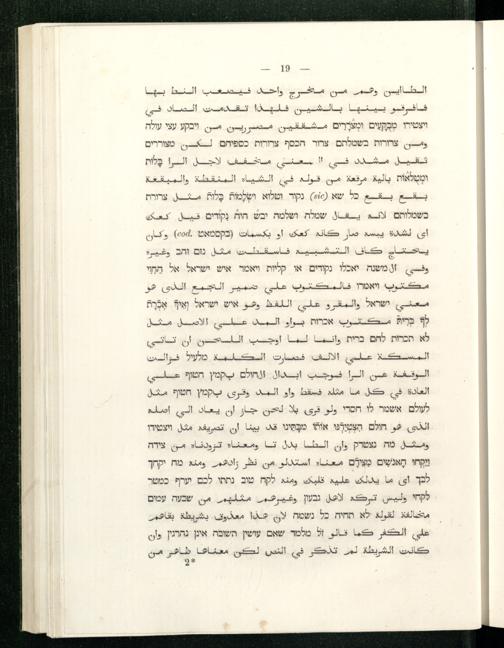 — 19 —
الطاءين وهم من مخرج واحد فيصعب النط بها
فافرقو بينها بالشين فلهذا تقدمت الصاد في
ויצטירו מְבֻקָּעִים וּמְצֹרָרִים مشققين مصررين من ויבקע עצי עולה
ومن צרורות בשמלתם צרור הכסף צרורות כספיהם لكن מצוררים
ثقيل مشدد في معنى مخفف لاجل الرا בָּלוֹת
וּמְטֻלָּאוֹת بالية مرقعة من قوله في الشياه المنقطة والمبقعة
بقع بقع כל שה (sic) נקוד וטלוא וּשְׂלָמוֹת בָּלוֹת مثل צרורת
בשמלותם لانه يقال שמלה ושלמה יבש היה נִקּוּדִים قيل كعك
اى لشدة يبسه صار كانه كعك او بكسمات (בקסמאט .cod) وكان
يحتاج كاف التشبيه فاسقطت مثل נזם זהב وغيره
وفي ال משנה יאכלו נקודים או קליות ויאמר איש ישראל אל הַחִוִּי
مكتوب ויאמרו فالمكتوب على ضمير الجمع الذى هو
معنى ישראל والمقرو على اللفظ وهو איש ישראל וְאֵיךְ אֶכְרָת
לְךָ בְרִית مكتوب אכרות بواو المد على الاصل مثل
לא תכרות להם ברית وانما لما اوجب اللحن ان تاتى
المسكة على الالف فصارت الكلمة מלעיל فزالت
الوقفة عن الرا فوجب ابدال ال חולם ب קמץ חטוף على
العادة في كل ما مثله فسقط واو المد وقرى ب קמץ חטוף مثل
לעולם אשמר לו חסדי ولو قرى بلا لحن جاز ان يعاد الى اصله
الذى هو חולם הִצְטַיַּדְנוּ אוֹתוֹ מִבָּתֵּינוּ قد بينا ان تصريفه مثل ויצטירו
ومثل מה נצטדק وان الطا بدل تا ومعناه تزودناه من צידה
וַיִּקְחוּ הָאֲנָשִׁים מִצֵּידָם معناه استدلو من نظر زادهم ومنه מה יקחך
לבך اى ما يدلك عليه قلبك ومنه לקח טוב נתתי לכם יערף כמטר
לקחי وليس تركه لاهل גבעון وغيرهم مثلهم من שבעה עמים
مخالفة لقوله לא תחיה כל נשמה لان هذا معذوق بشريطة بقاهم
على الكفر كما قالو ז״ל מלמד שאם עושין תשובה אינן נהרגין وان
كانت الشريطة لم تذكر في النص لكن معناها ظاهر من
2*